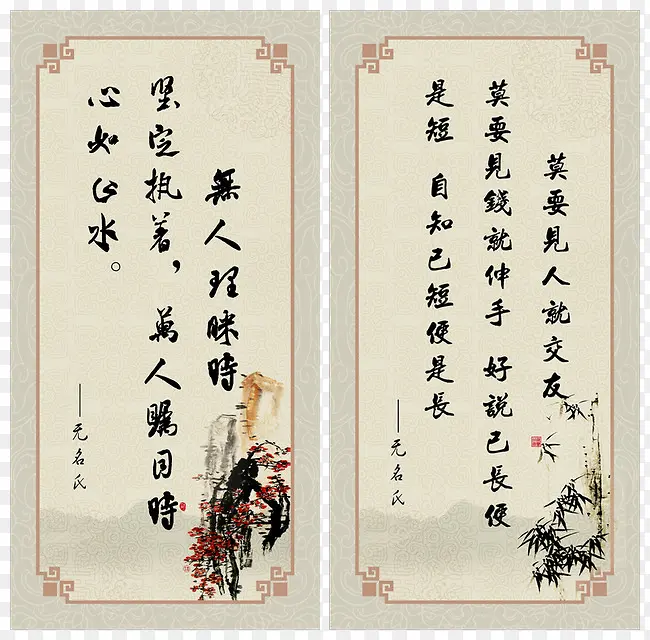 無人理睬時
坚定执着，萬人瞩目時
心如止水。
——无名氏
莫要見人就交友
莫要見錢就伸手 好説己長便
是短 自知己短便是長
——无名氏